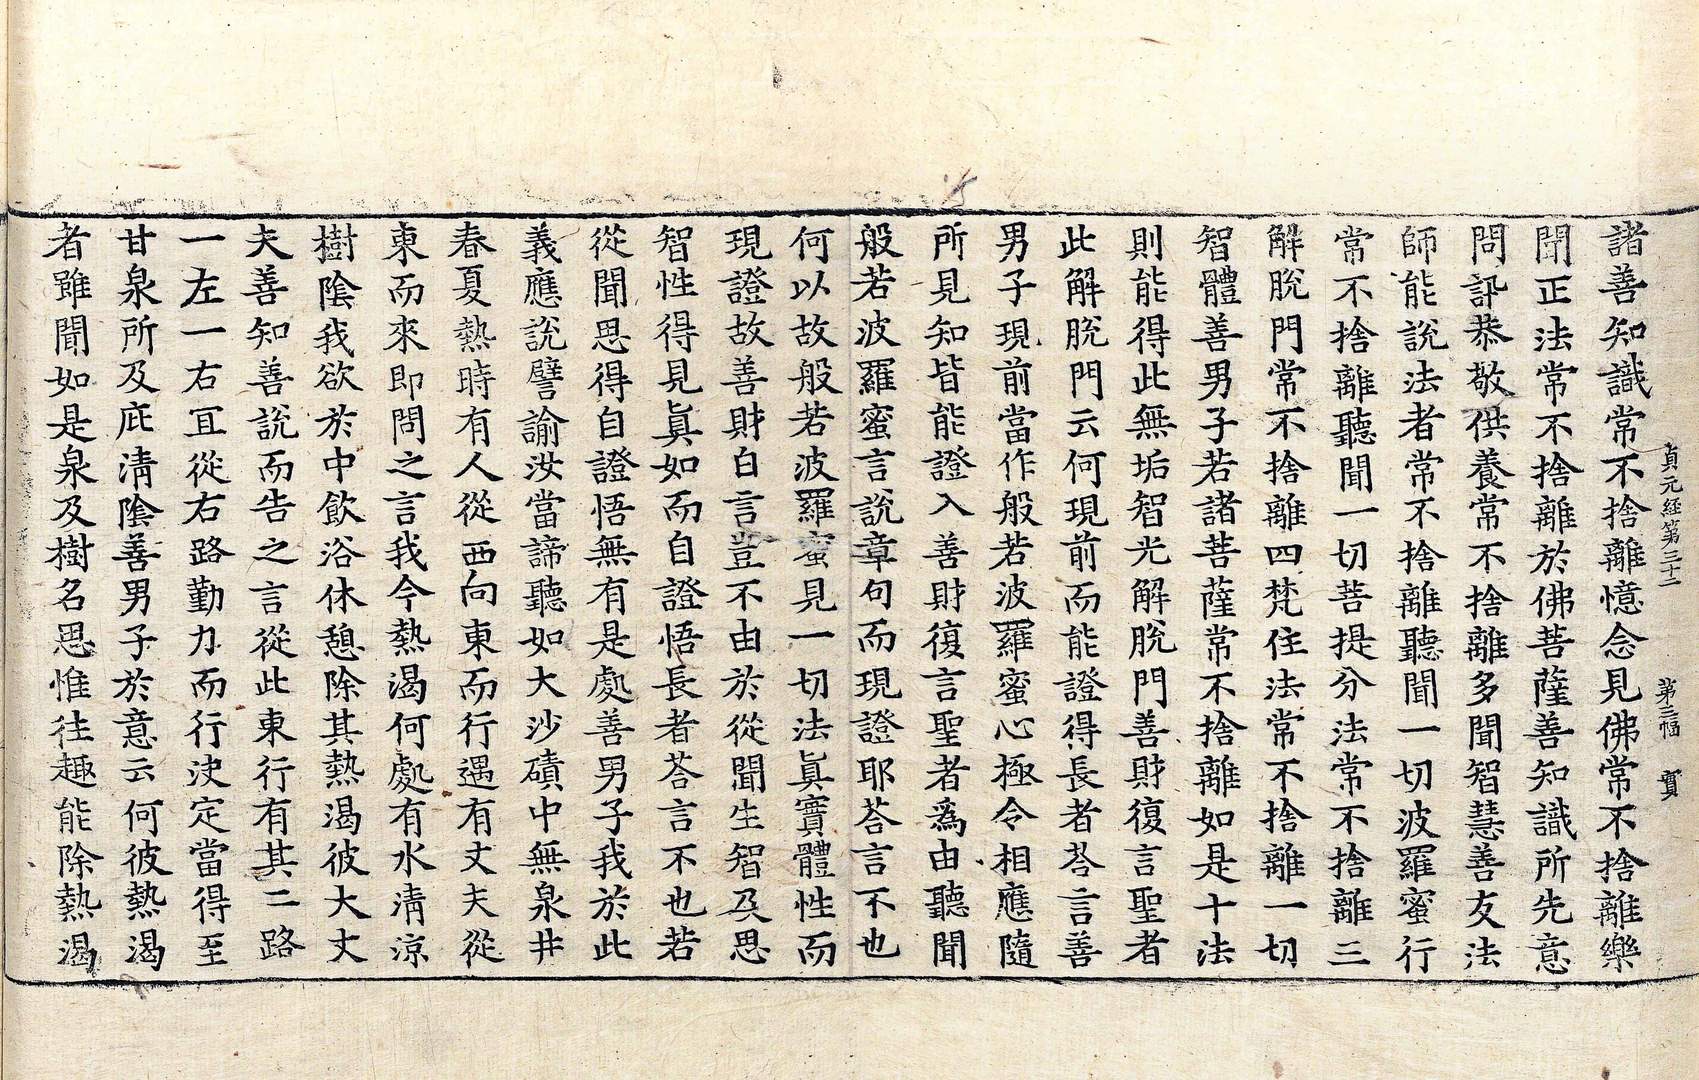 諸善知識常不捨離憶念見佛常不捨離樂
聞正法常不捨離於佛菩薩善知識所先意
問訊恭敬供養常不捨離多聞智慧善友法
師能說法者常不捨離聽聞一切波羅蜜行
常不捨離聽聞一切菩提分法常不捨離三
解脫門常不捨離四梵住法常不捨離一切
智體善男子若諸菩薩常不捨離如是十法
則能得此無垢智光解脫門善財復言聖者
此解脫門云何現前而能證得長者荅言善
男子現前當作般若波羅蜜心極令相應隨
所見知皆能證入善財復言聖者爲由聽聞
般若波羅蜜言說章句而現證耶荅言不也
何以故般若波羅蜜見一切法眞實體性而
現證故善財白言豈不由於從聞生智及思
智性得見眞如而自證悟長者荅言不也若
從聞思得自證悟無有是處善男子我於此
義應說譬諭汝當諦聽如大沙磧中無泉井
春夏熱時有人從西向東而行遇有丈夫從
東而來即問之言我今熱渴何處有水淸涼
樹陰我欲於中飮浴休憩除其熱渴彼大丈
夫善知善說而告之言從此東行有其二路
一左一右宜從右路勤力而行決定當得至
甘泉所及庇淸陰善男子於意云何彼熱渴
者雖聞如是泉及樹名思惟往趣能除熱渴
貞元經第三十二 第三幅 賓